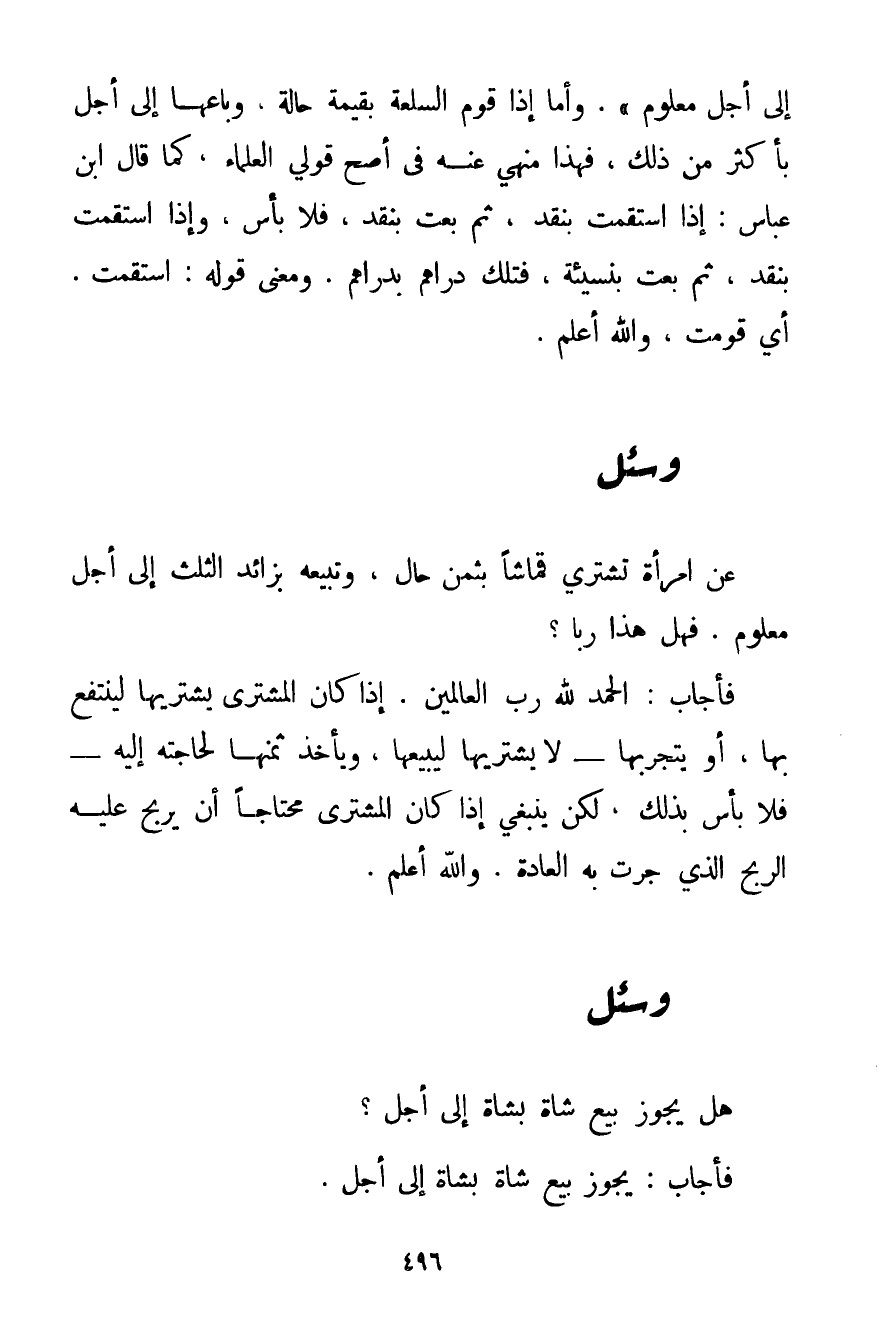 إلى أجل معلوم » . وأما إذا قوم السلعة بقيمة حالة ، وباعهـا إلى أجل
بأكثر من ذلك ، فهذا منهي عنـه فى أصح قولي العلماء ، كما قال ابن
عباس : إذا استقمت بنقد ، ثم بعت بنقد ، فلا بأس ، وإذا استقمت
بنقد ، ثم بعت بنسيئة ، فتلك دراهم بدراهم . ومعنى قوله : استقمت .
أي قومت ، والله أعلم .
وسئل
عن امرأة تشتري قماشاً بثمن حال ، وتبيعه بزائد الثلث إلى أجل
معلوم . فهل هذا ربا ؟
فأجاب : الحمد لله رب العالمين . إذا كان المشترى يشتريها لينتفع
بها ، أو يتجر بها — لا يشتريها ليبيعها ، ويأخذ ثمنهـا لحاجته إليه —
فلا بأس بذلك ، لكن ينبغي إذا كان المشترى محتاجـاً أن يربح عليـه
الربح الذي جرت به العادة . والله أعلم .
وسئل
هل يجوز بيع شاة بشاة إلى أجل ؟
فأجاب : يجوز بيع شاة بشاة إلى أجل .
٤٩٦